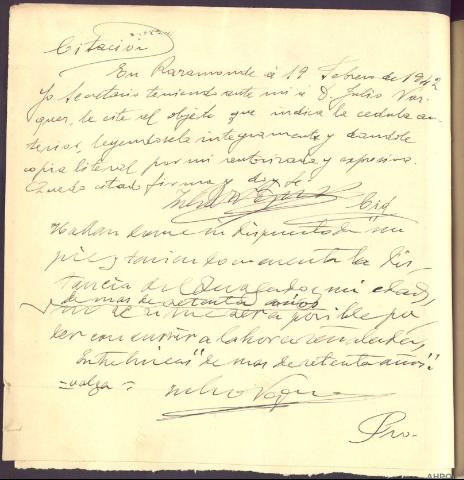 Citación
En Paramonde á 19 Febrero de 1942
Yo Secretario teniendo ante mi á D. Julio Vaz-
quez, le cité al objeto que indica la cedula an-
terior, leyendosela integramente y dandole
copia literal por mi autorizada y expresiva.
Queda citado firma y doy fe.
Hallandome in dispuesto de un
pie y teniendo en cuenta la dis-
tancia del Juzgado y mi edad,
de mas de setenta años
no se si me sera posible po-
der concurrir a la hora señalada,
Entrelineas "de mas de setenta años".
=valga=
Julio Vazquez
Pro-
AHPO